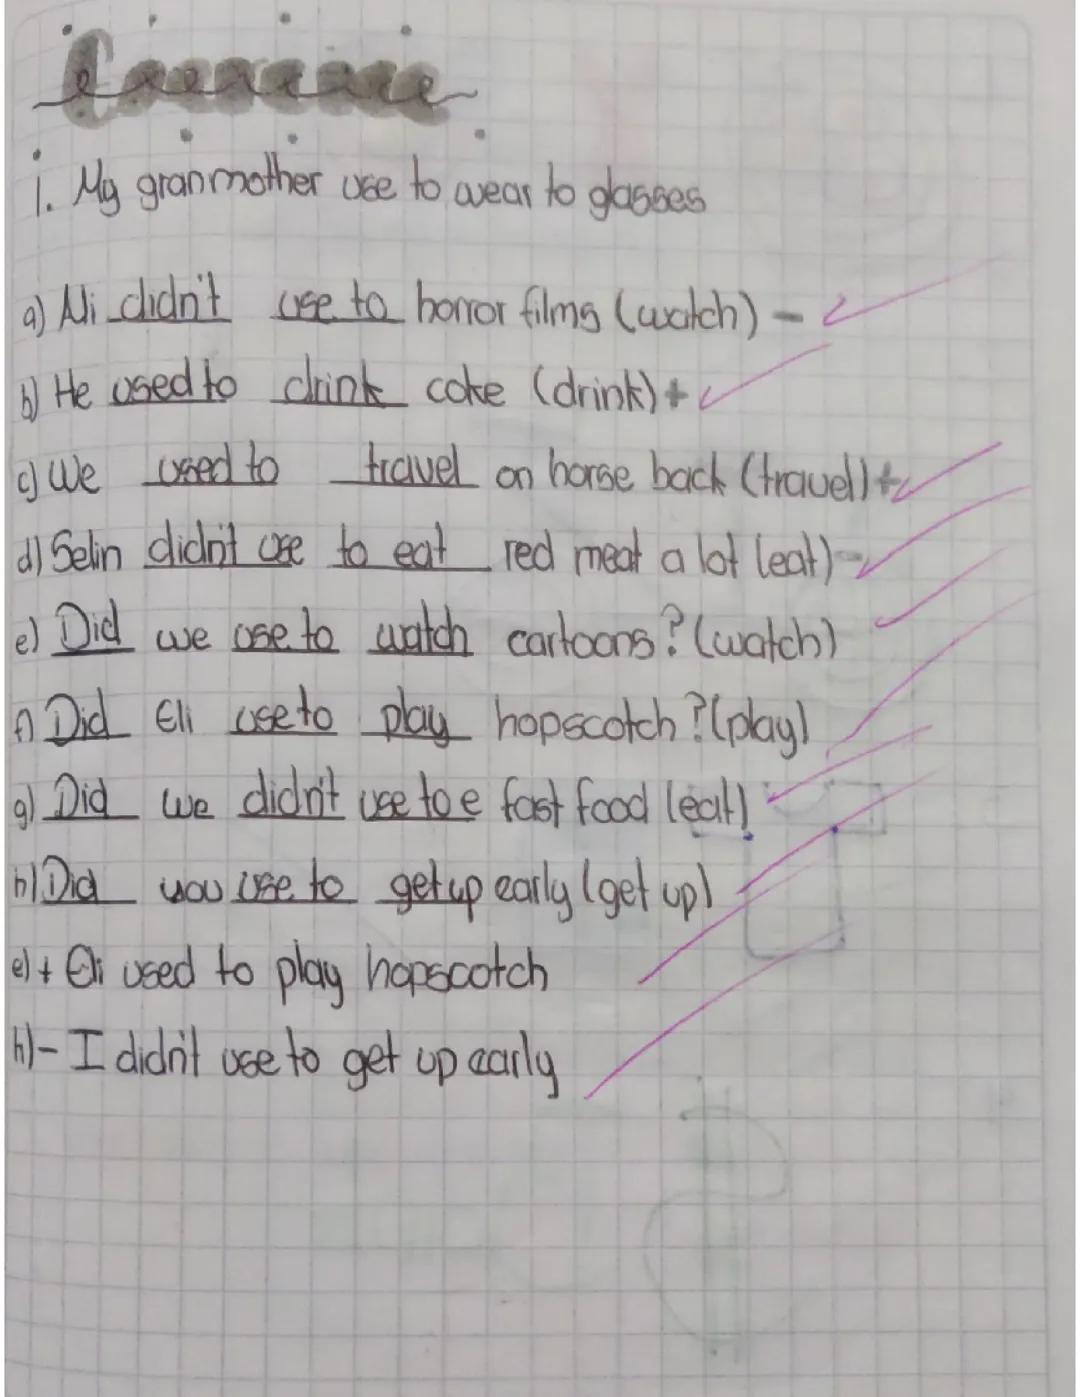 Exercise
1. My granmother use to wear to glasses
a) Ali didn't use to horror films (watch) -
b) He used to drink coke (drink) +
c) We used to travel on horse back (travel) +
d) Selin didn't use to eat red meat a lot (eat) -
e) Did we use to watch cartoons? (watch)
f) Did Eli use to play hopscotch? (play)
g) Did we didn't use to e fast food (eat)
h) Did you use to get up early (get up)
e) + Eli used to play hopscotch
h) - I didn't use to get up early